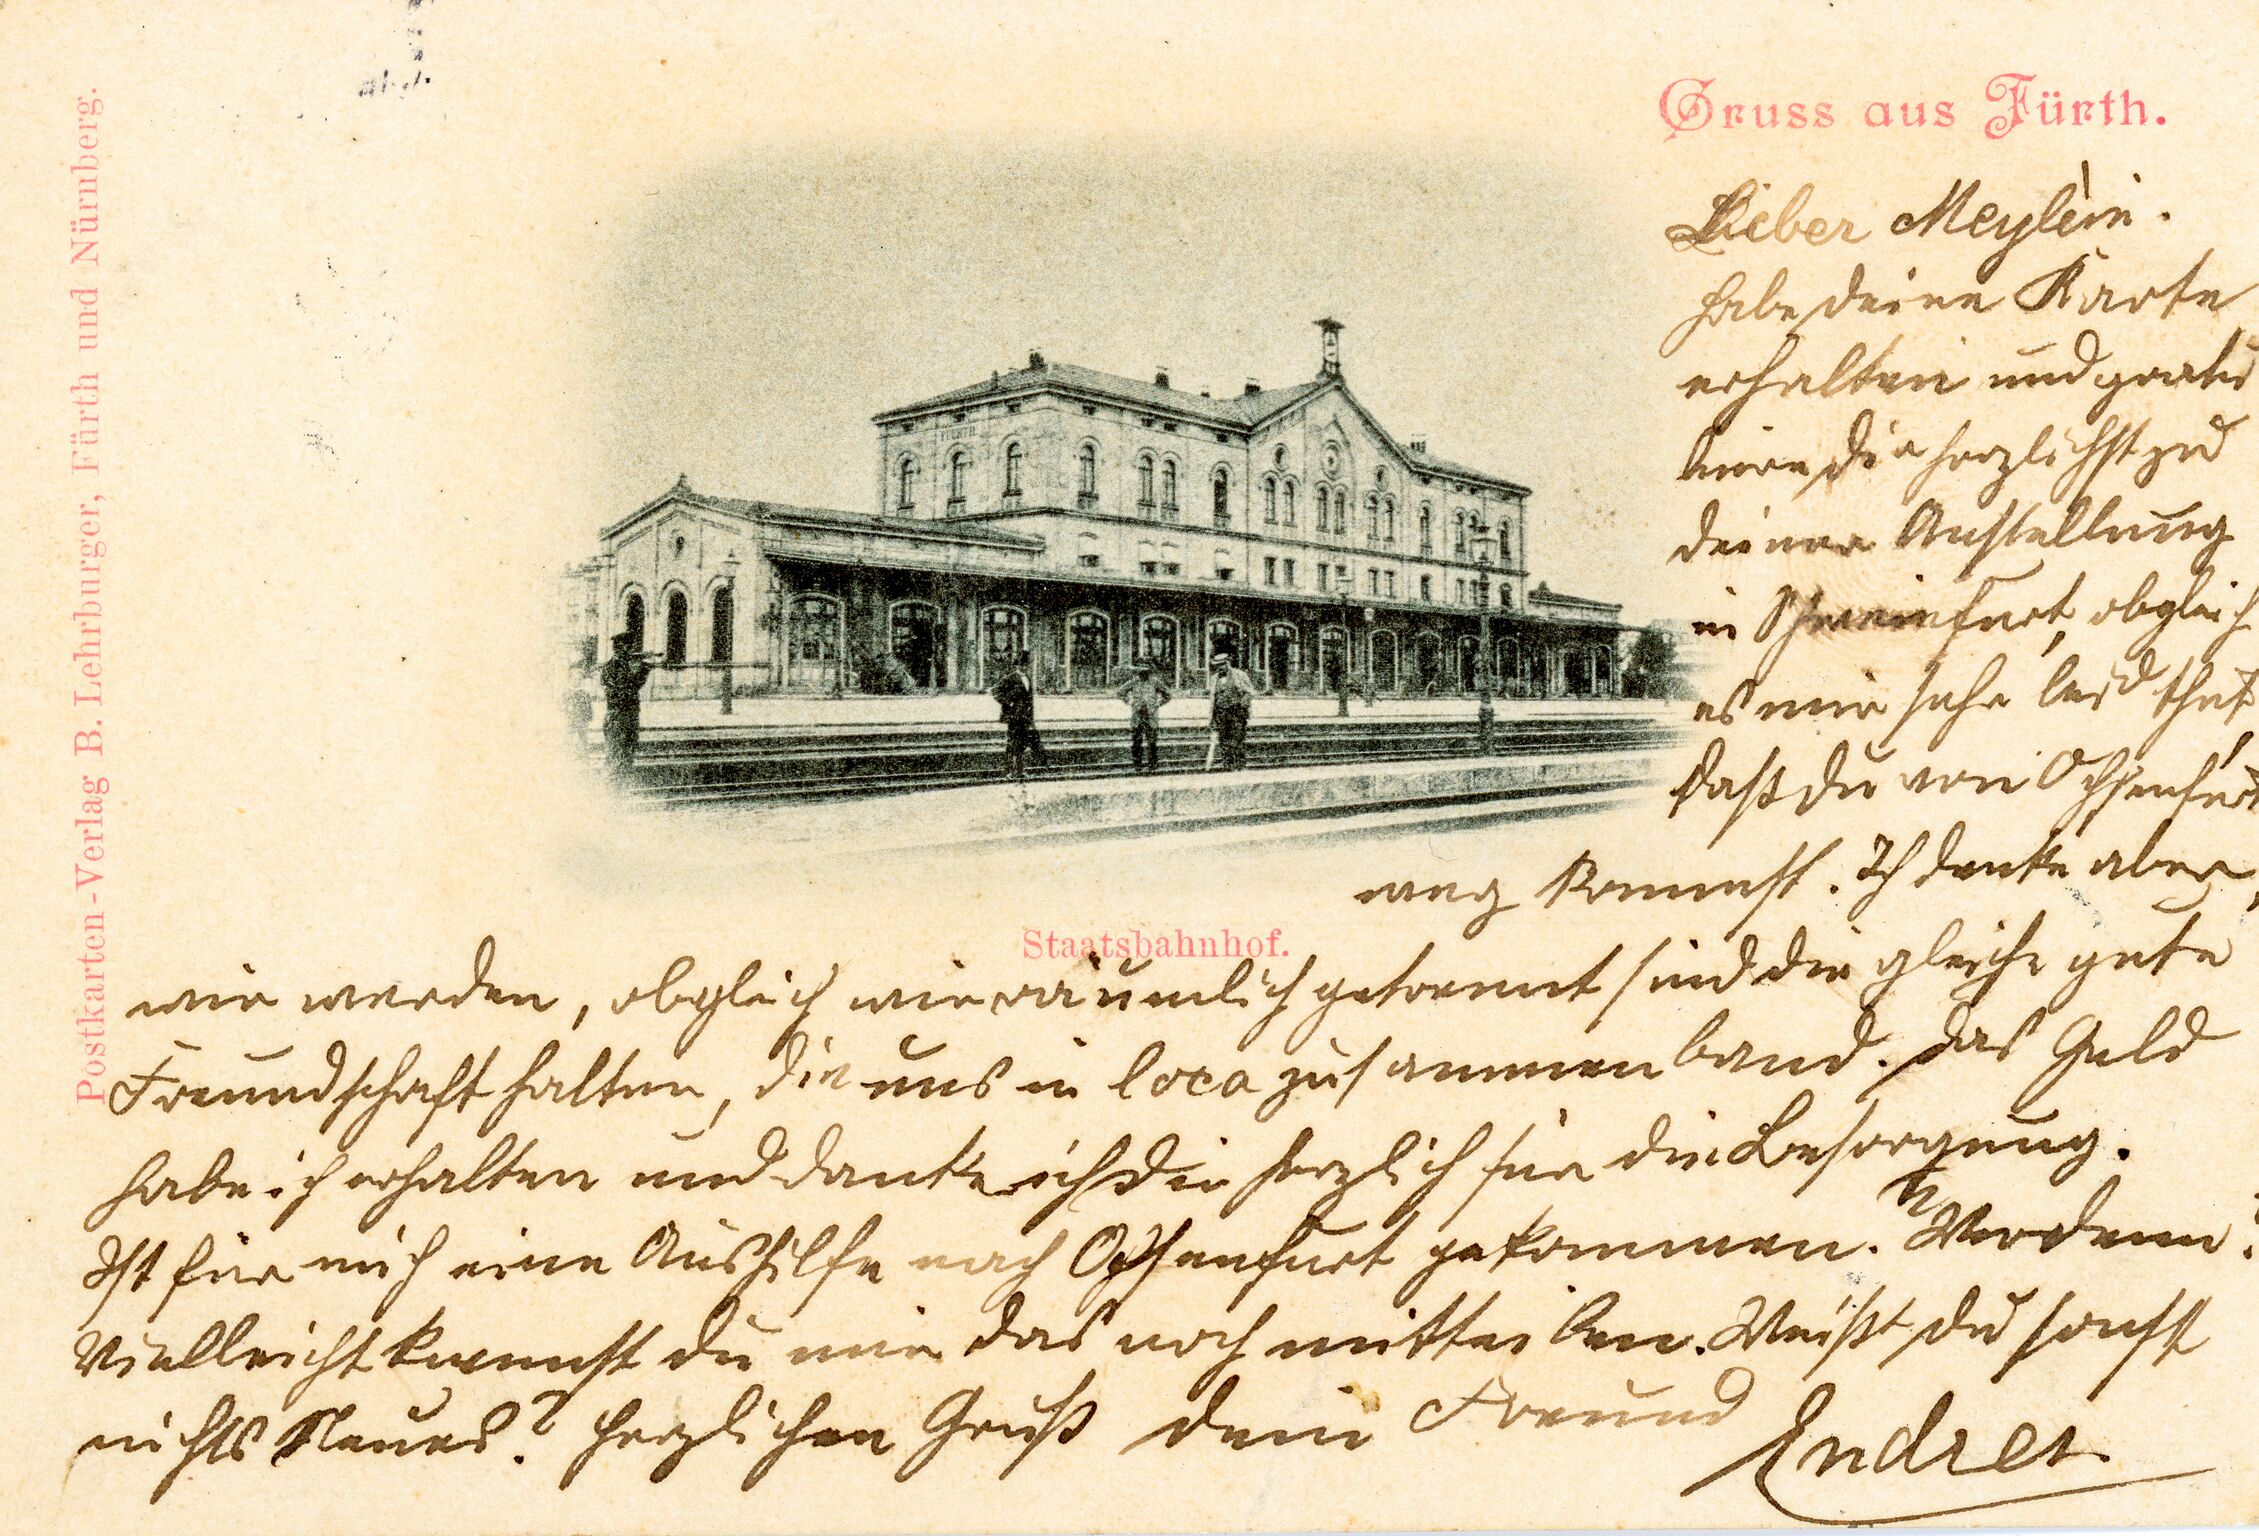 Gruss aus Fürth.
Postkarten-Verlag B. Lehrburger, Fürth und Nürnberg.
Staatsbahnhof.
Lieber Meylein.
habe deine Karte
erhalten und gratu
liere dir herzlichst zu
deiner Anstellung
in Schweinfurt, obgleich
es mir sehr leid that,
daß du von Ochsenfurt
weg kommst. Ich denke aber,
wir werden, obgleich wir räumlich getrennt sind die gleiche gute
Freundschaft halten, die uns in loco zusammen band. Das Geld
habe ich erhalten und danke ich dir herzlich für die Besorgung.
Ist für mich eine Aushilfe nach Ochsenfurt gekommen. Wer denn?
Vielleicht kannst du mir das noch mitteilen. Weißt du sonst
nichts Neues? Herzlichen Gruß dein Freund
Endres